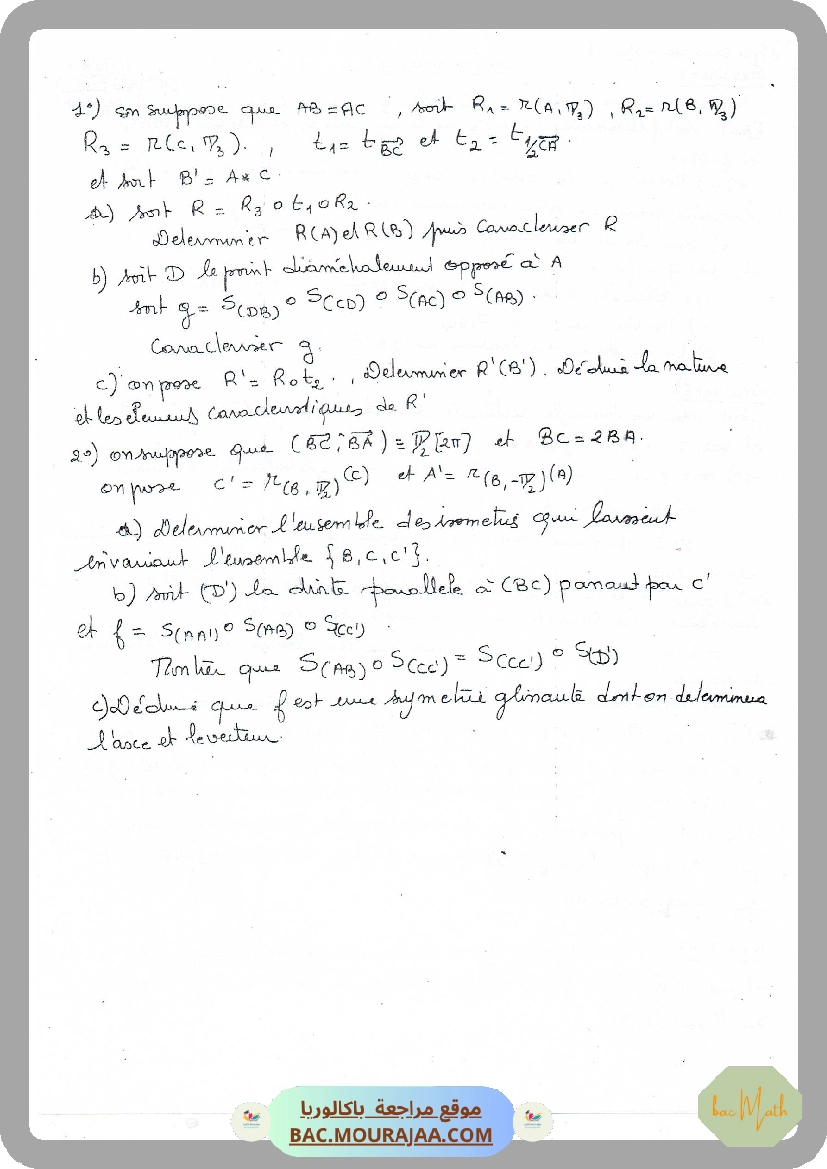 1°) on suppose que AB = AC , soit R₁ = r(A, π/3) , R₂ = r(B, π/3)
R₃ = r(C, π/3). , t₁ = t_{\vec{BC}} et t₂ = t_{1/2 \vec{CA}} .
et soit B' = A * C .
a) soit R = R₃ o t₁ o R₂ .
Determinier R(A) et R(B) puis Caracteriser R
b) soit D le point diamétralement opposé à A
soit g = S(DB) o S(CD) o S(AC) o S(AB) .
Caracteriser g.
c) on pose R' = R o t₂ . , Determinier R'(B') . Déduire la nature
et les élements caracteristiques de R'
2°) on suppose que (\vec{BC} ^ \vec{BA}) ≡ π/2 [2π] et BC = 2BA .
on pose C' = r(B, π/2)(C) et A' = r(B, -π/2)(A)
a) Determinier l'ensemble des isometries qui laissent
invariant l'ensemble { B, C, C' }.
b) soit (D') la droite parallele à (BC) passant par C'
et f = S(AA') o S(AB) o S(CC') .
Montrer que S(AB) o S(CC') = S(CC') o S(D')
c) Déduire que f est une symetrie glissante dont on determinera
l'axe et le vecteur.
موقع مراجعة باكالوريا
BAC.MOURAJAA.COM
bac Math